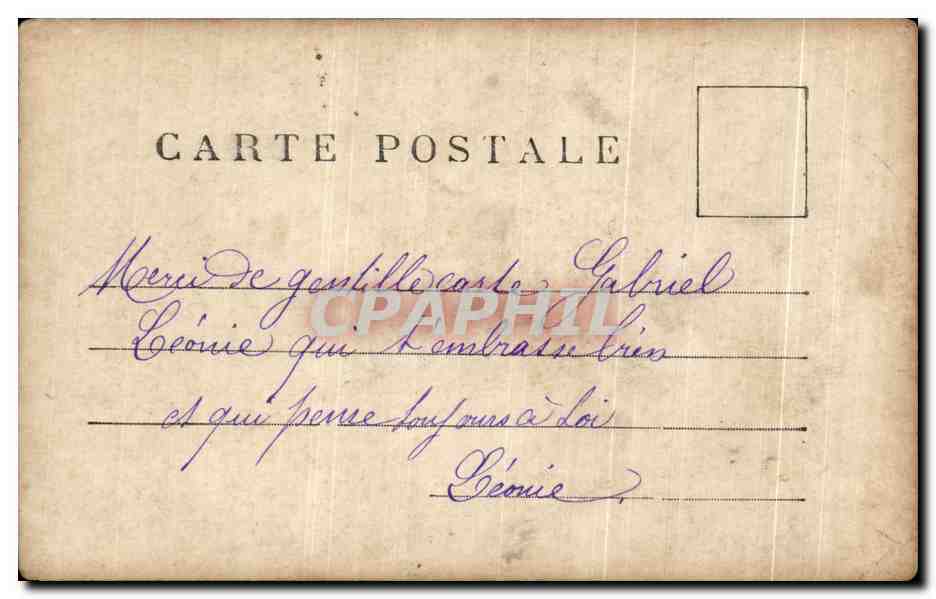 CARTE POSTALE
Merci de gentille carte Gabriel
CPAPHIL
Léonie qui t'embrasse bien
et qui pense toujours à toi
Léonie